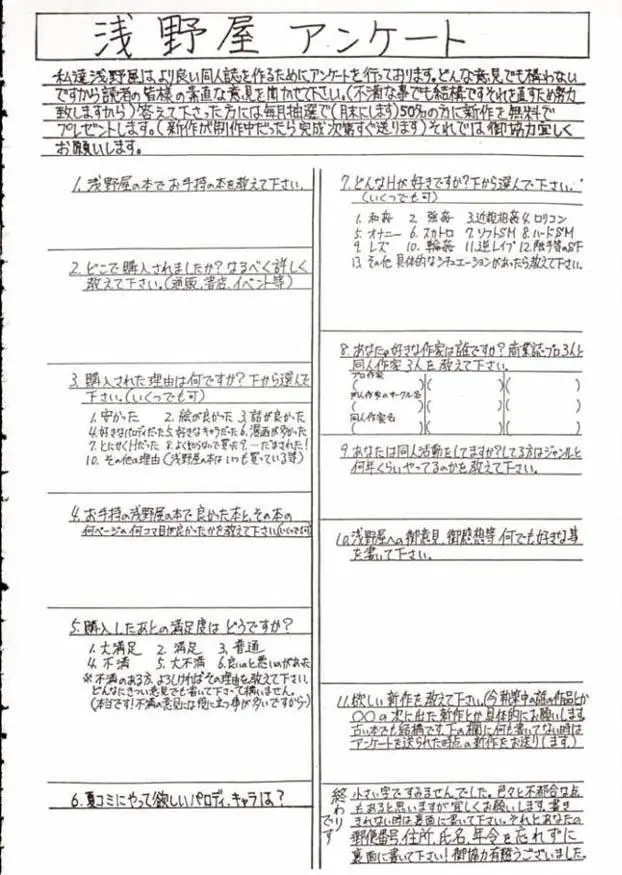 浅野屋 アンケート
私達浅野屋は、より良い同人誌を作るためにアンケートを行っております。どんな意見でも構わない
ですから読者の皆様の素直な意見を聞かせて下さい。(不満な事でも結構ですそれを直すため努力
致しますから)答えて下さった方には毎月抽選で(月末にします)50名の方に新作を無料で
プレゼントします。(新作が制作中だったら完成次第すぐ送ります)それでは御協力宜しく
お願いします。
1. 浅野屋の本でお手持の本を教えて下さい。
2. どこで購入されましたか?なるべく詳しく
教えて下さい。(通販、書店、イベント等)
3. 購入された理由は何ですか?下から選んで
下さい。(いくつでも可)
1. 安かった 2. 絵が良かった 3. 話が良かった
4. 好きなパロディだった 5. 好きなキャラだった 6. 漫画が多かった
7. とにかくHだった 8. よく知らないで買った 9. …だまされた!
10. その他の理由(浅野屋の本はいつも買っている等)
4. お手持の浅野屋の本で良かった本と、その本の
何ページの何コマ目が良かったかを教えて下さい(いくつでも可)
5. 購入したあとの満足度はどうですか?
1. 大満足 2. 満足 3. 普通
4. 不満 5. 大不満 6. 良いのと悪いのがあった
※不満のある方、よろしければその理由を教えて下さい。
どんなにきつい意見でも書いて下さって構いません。
(本当です!不満の意見には役に立つ事が多いですから)
6. 夏コミにやって欲しいパロディ、キャラは?
7. どんなHが好きですか?下から選んで下さい。
(いくつでも可)
1. 和姦 2. 強姦 3. 近親相姦 4. ロリコン
5. オナニー 6. スカトロ 7. ソフトSM 8. ハードSM
9. レズ 10. 輪姦 11. 逆レイプ 12.
13. その他 具体的なシチュエーションがあったら教えて下さい。
8. あなたの好きな作家は誰ですか?商業誌・プロ3人と
同人作家3人を教えて下さい。
プロ作家
( )( )( )
同人作家のサークル名
( )( )( )
同人作家名
( )( )( )
9. あなたは同人活動をしてますか?してる方はジャンルと
何年くらいやってるのかを教えて下さい。
10. 浅野屋への御意見、御感想等、何でも好きな事
を書いて下さい。
11. 欲しい新作を教えて下さい。(今執筆中の謎の作品とか
〇〇の次に出た新作とか具体的にお願いします。
古い本でも結構です。下の欄に何も書いてない時は
アンケートを送られた時点の新作をお送りします。)
終わりです
小さい字ですみませんでした。色々と不都合な点
もあると思いますが宜しくお願いします。書き
きれない時は裏面に書いて下さい。それとあなたの
郵便番号、住所、氏名、年令を忘れずに
裏面に書いて下さい!御協力有難うございました。